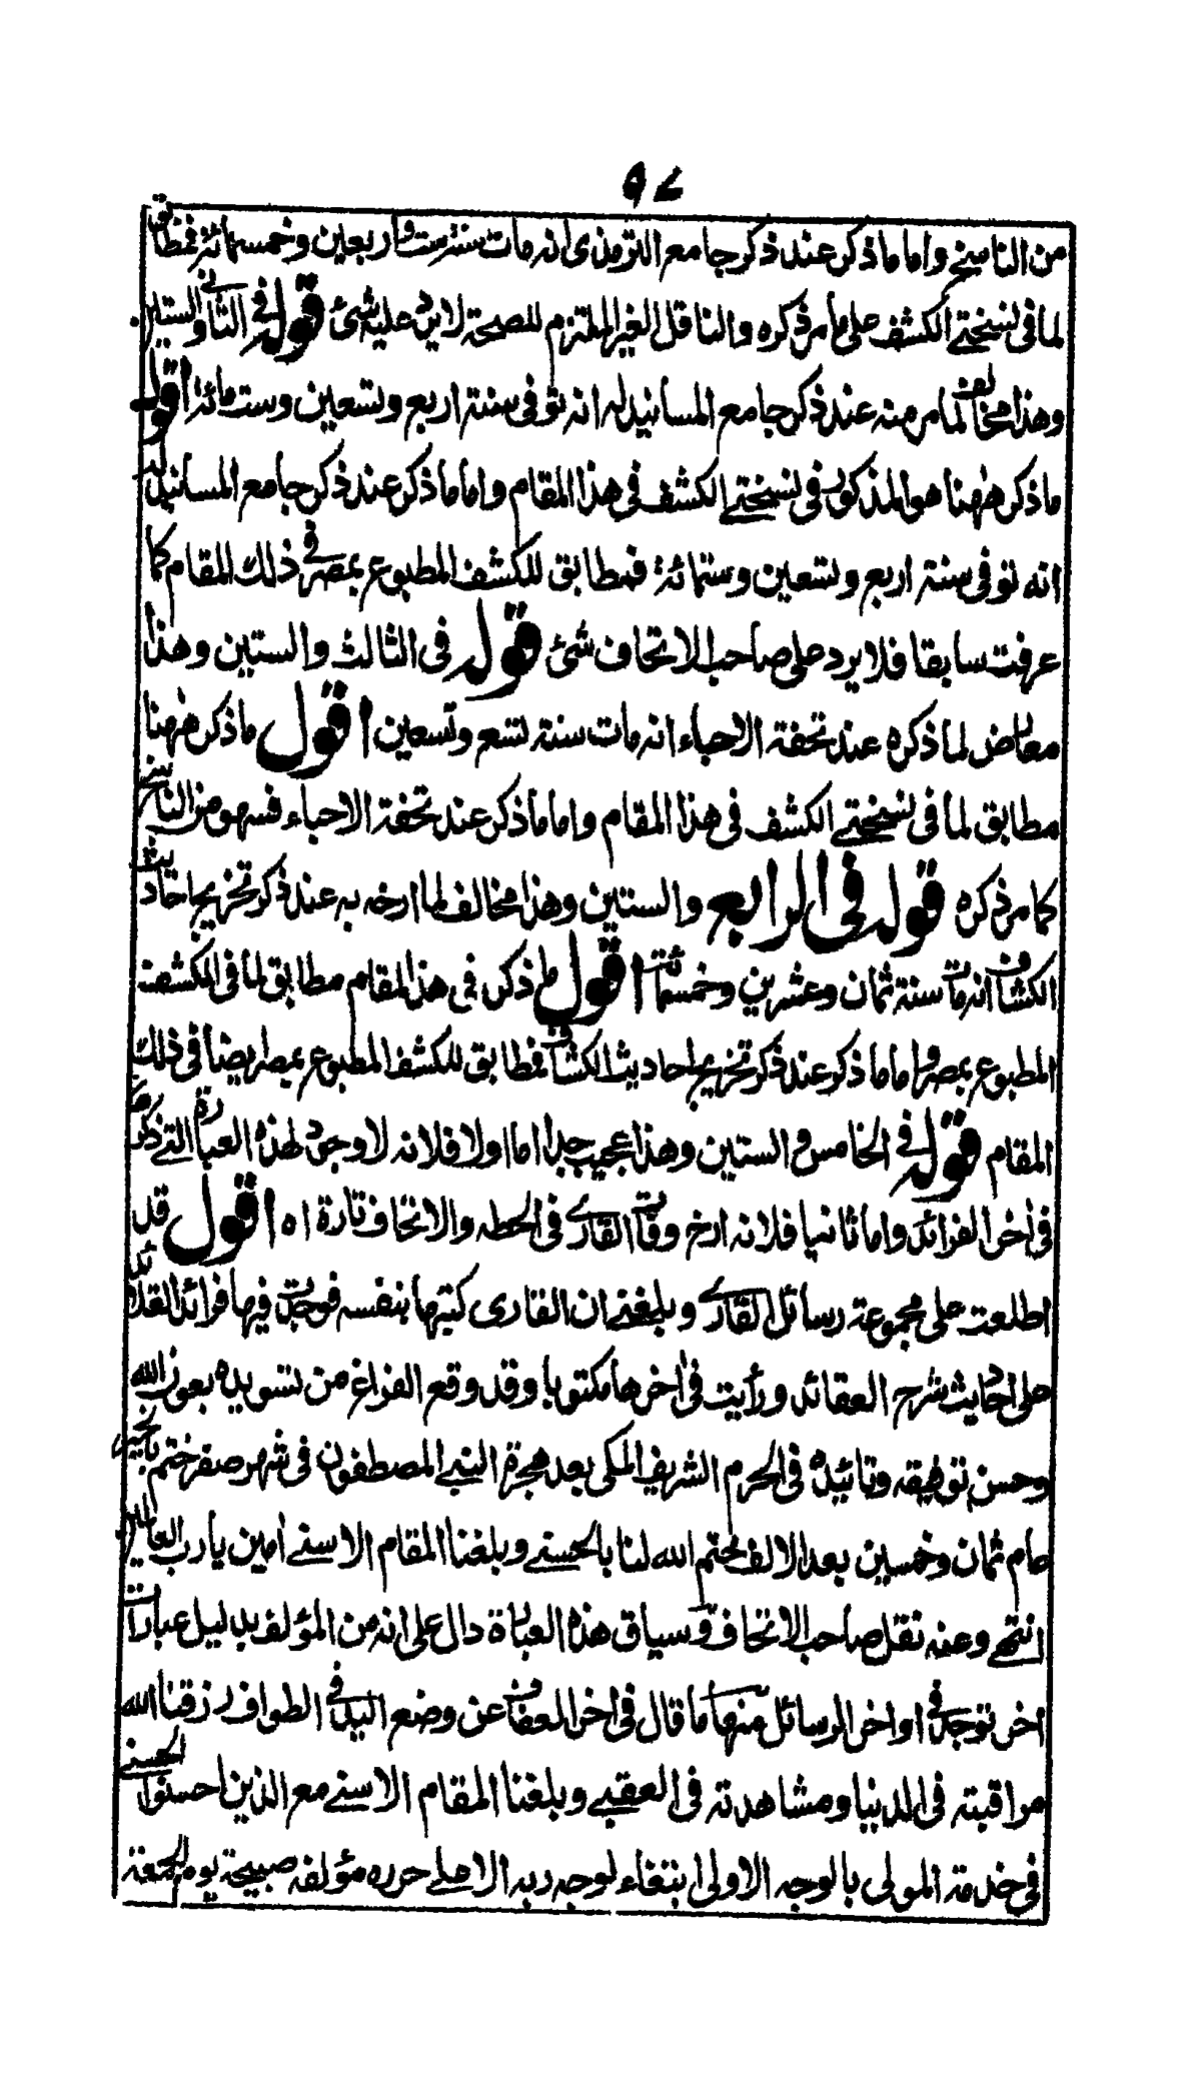 ٩٧
من الناسخ واما ما ذكر عند ذكر جامع الترمذى انه مات سنة ست واربعين وخمسمائة فمطابق
لما فى نسختے الكشف على ما مر ذكره والناقل الغير الملتزم للصحة لا يرد عليه شئ قوله فے الثانى والستين
وهذا مخالف لما مر منه عند ذكر جامع المسانيد له انه توفى سنة اربع وتسعين وست مائة اقول
ما ذكر ههنا هو المذكور فى نسختے الكشف فى هذا المقام واما ما ذكر عند ذكر جامع المسانيد له
انه توفى سنة اربع وتسعين وستمائة فمطابق للكشف المطبوع بمصر فے ذلك المقام كما
عرفت سابقا فلا يرد على صاحب الاتحاف شئ قوله فى الثالث والستين وهذا
معارض لما ذكره عند تحفة الاحباء انه مات سنة تسع وتسعين اقول ما ذكر ههنا
مطابق لما فى نسختے الكشف فى هذا المقام واما ما ذكر عند تحفة الاحباء فسهو من الناسخ
كما مر ذكره قوله فى الرابع والستين وهذا مخالف لما ارخه به عند ذكر تخريج احاديث
الكشاف انه مات سنة ثمان وعشرين وخمسمائة اقول ما ذكر فى هذا المقام مطابق لما فى الكشف
المطبوع بمصر واما ما ذكر عند ذكر تخريج احاديث الكشاف فمطابق للكشف المطبوع بمصر ايضا فى ذلك
المقام قوله فے الخامس والستين وهذا عجيب جدا اما اولا فلانه لا وجود لهذه العبارة التے ذكرها
فى اخر الفرائد واما ثانيا فلانه ارخ وفات القارے فى الحطه والاتحاف تارة اه اقول قد
اطلعت على مجموعة رسائل القارے وبلغنے ان القارى كتبها بنفسه فوجدت فيها فرائد القلائد
على احاديث شرح العقائد ورأيت فى اخرها مكتوبا وقد وقع الفراغ من تسويده بعون الله
وحسن توفيقه وتائيده فى الحرم الشريف المكى بعد هجرة النبے المصطفوى فى شهر صفر ختم بالخير
عام ثمان وخمسين بعد الالف ختم الله لنا بالحسنے وبلغنا المقام الاسنے امين يا رب العالمين
انتهے وعنه نقل صاحب الاتحاف وسياق هذه العبارة دال على انه من المؤلف بدليل عبارات
اخر توجد فے اواخر الرسائل منها ما قال فى اخر المعفات عن وضع اليد فے الطواف رزقنا الله
مراقبته فى الدنيا ومشاهدته فى العقبے وبلغنا المقام الاسنے مع الذين احسنوا الحسنے
فى خدمة المولى بالوجه الاولى ابتغاء لوجه ربه الاعلے حرره مؤلفه صبيحة يوم الجمعة